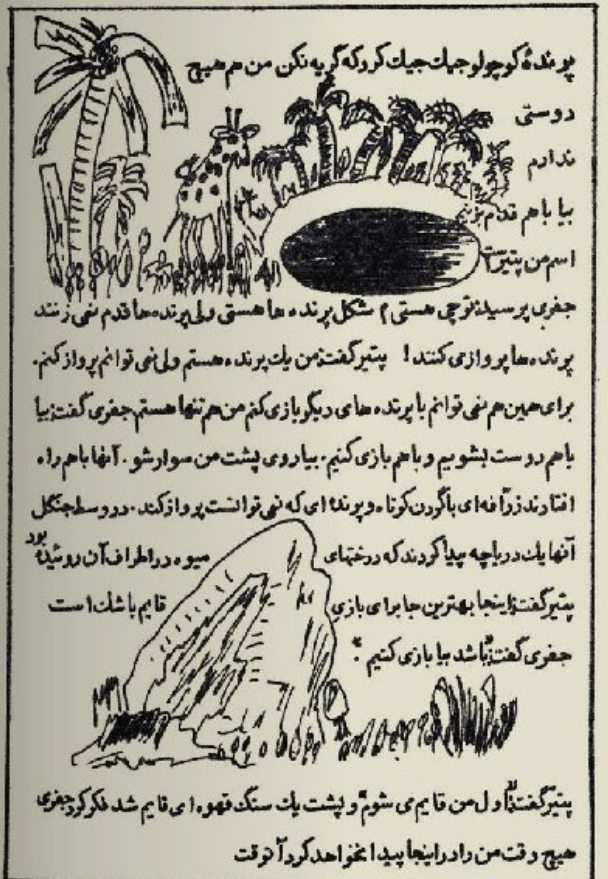 پرندهٔ کوچولو جیك جیك کرد که گریه نکن من هم هیچ
دوستی
ندارم
بیا با هم قدم بزنیم
اسم من پیتیر است
جفری پرسید: تو چی هستی؟ شکل پرنده ها هستی ولی پرنده ها قدم نمی زنند
پرنده ها پرواز می کنند! پیتیر گفت: من یك پرنده هستم ولی نمی توانم پرواز کنم.
برای همین هم نمی توانم با پرنده های دیگر بازی کنم من هم تنها هستم. جفری گفت: بیا
باهم دوست بشویم و باهم بازی کنیم. بیا روی پشت من سوار شو. آنها باهم راه
افتادند زرّافه ای با گردن کوتاه و پرنده ای که نمی توانست پرواز کند. در وسط جنگل
آنها یك دریاچه پیدا کردند که درختهای میوه در اطراف آن روئیده بود
پیتیر گفت: اینجا بهترین جا برای بازی قایم باشك است
جفری گفت: "باشد بیا بازی کنیم."
پیتیر گفت: "اول من قایم می شوم" و پشت یك سنگ قهوه ای قایم شد فکر کرد جفری
هیچ وقت من را در اینجا پیدا نخواهد کرد آنوقت